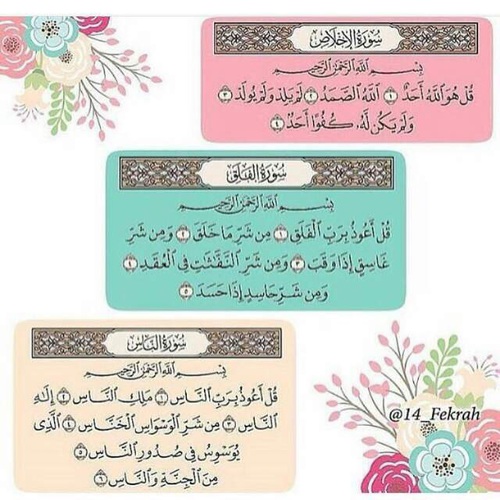 سُورَةُ الإِخْلَاصِ
بِسْمِ ٱللَّهِ ٱلرَّحْمَٰنِ ٱلرَّحِيمِ
قُلْ هُوَ ٱللَّهُ أَحَدٌ ١ ٱللَّهُ ٱلصَّمَدُ ٢ لَمْ يَلِدْ وَلَمْ يُولَدْ ٣
وَلَمْ يَكُن لَّهُۥ كُفُوًا أَحَدٌ ٤
سُورَةُ الفَلَقِ
بِسْمِ ٱللَّهِ ٱلرَّحْمَٰنِ ٱلرَّحِيمِ
قُلْ أَعُوذُ بِرَبِّ ٱلْفَلَقِ ١ مِن شَرِّ مَا خَلَقَ ٢ وَمِن شَرِّ
غَاسِقٍ إِذَا وَقَبَ ٣ وَمِن شَرِّ ٱلنَّفَّٰثَٰتِ فِي ٱلْعُقَدِ ٤
وَمِن شَرِّ حَاسِدٍ إِذَا حَسَدَ ٥
سُورَةُ النَّاسِ
بِسْمِ ٱللَّهِ ٱلرَّحْمَٰنِ ٱلرَّحِيمِ
قُلْ أَعُوذُ بِرَبِّ ٱلنَّاسِ ١ مَلِكِ ٱلنَّاسِ ٢ إِلَٰهِ
ٱلنَّاسِ ٣ مِن شَرِّ ٱلْوَسْوَاسِ ٱلْخَنَّاسِ ٤ ٱلَّذِي
يُوَسْوِسُ فِي صُدُورِ ٱلنَّاسِ ٥
مِنَ ٱلْجِنَّةِ وَٱلنَّاسِ ٦
@14_Fekrah